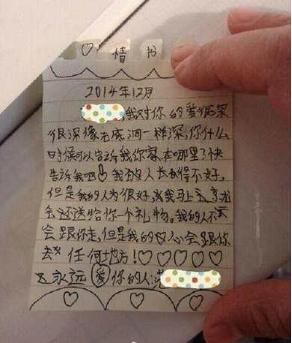 ♡ 情书
2014年12月
我对你的爱
很深像无底洞一样深,你什么
时候可以告诉我你家在哪里?快
告诉我吧!我的人长得不好,
但是我的人为很好,我马上
送给你一个礼物,我的人不
会跟你走,但是我的心会跟你
去 任何地方!♡♡♡♡♡
永远爱你的人: